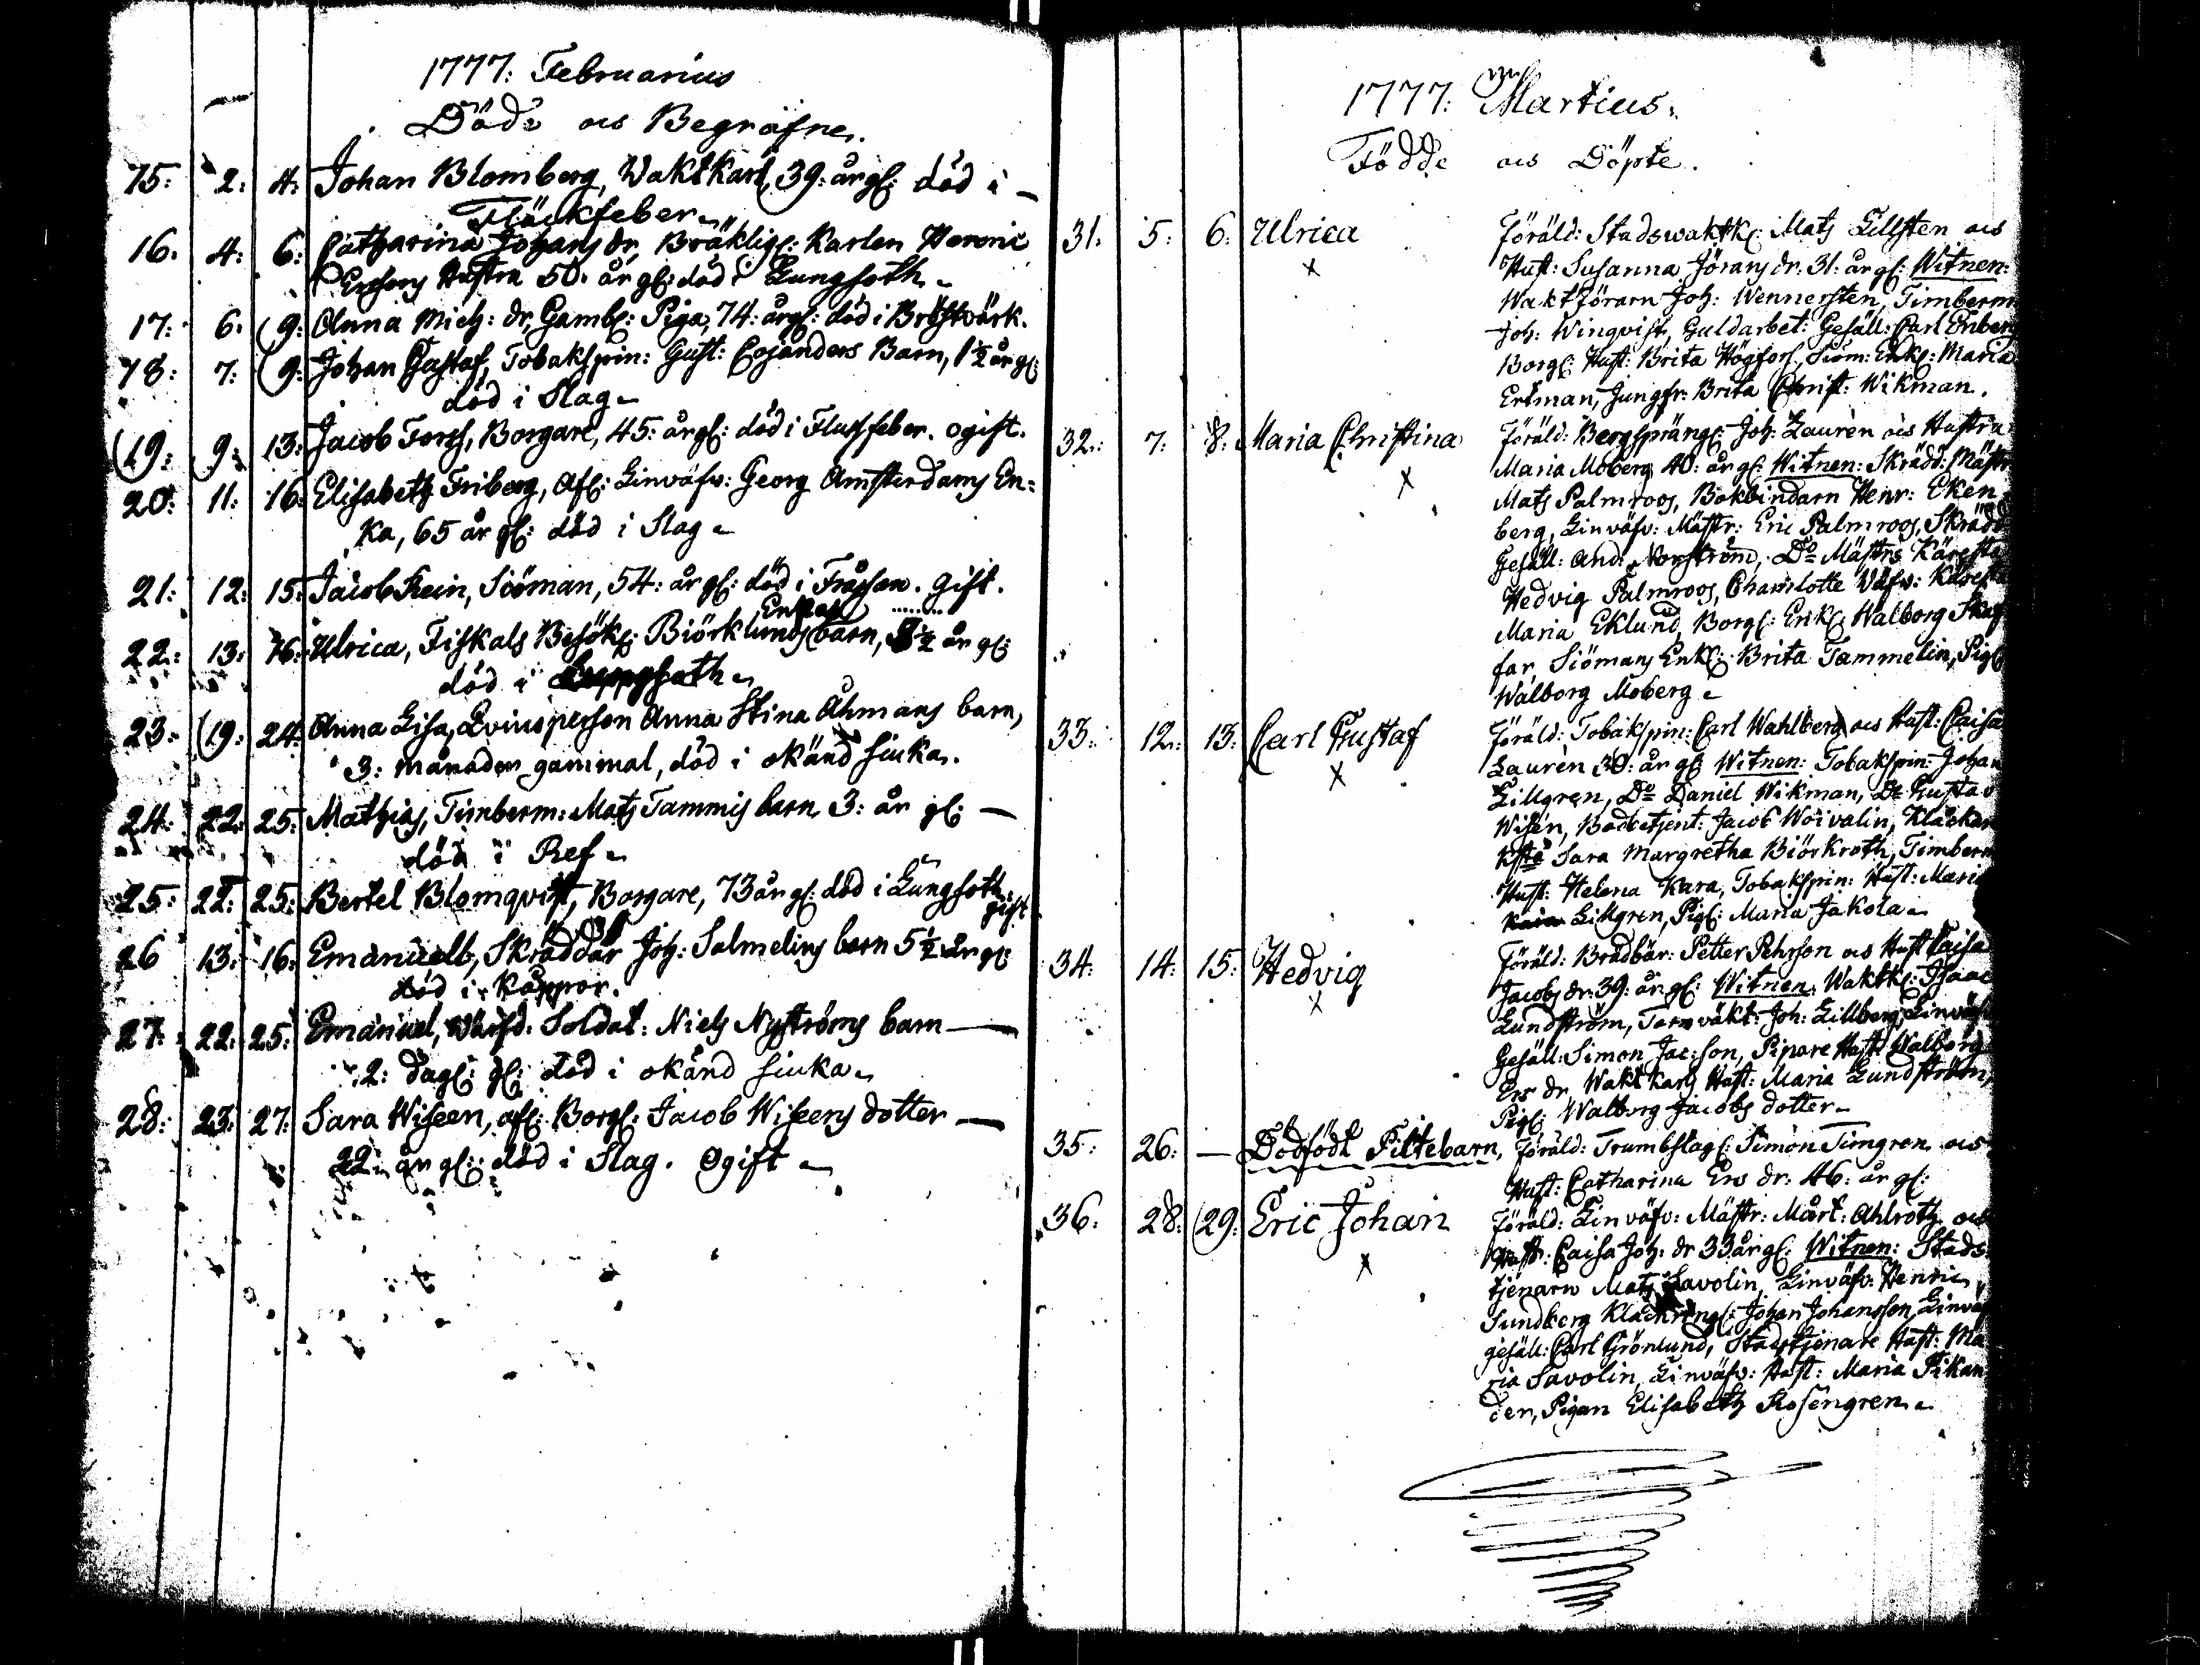 1777: Februarius
Döde ocs Begrafne.
15: 2: 4: Johan Blomberg, Waktkarl, 39: år gl: död i —
Fläckfeber.
16. 4: 6: Catharina Johans dr, Bräklig: Karlen Henric
Erssons Hustru 50. år gl: död i Lungsoth.
17: 6. 9: Anna Mich: dr, Gambl: Piga, 74: år gl: död i Bröstvärk.
18: 7: 9: Johan Gustaf, Tobakspin: Gust: Cojanders Barn, 1½ år gl:
död i Slag.
19: 9: 13: Jacob Forss, Borgare, 45: år gl: död i Flussfeber. ogift.
20: 11: 16: Elisabeth Friberg, Afl: Linväfv: Georg Amsterdams En=
ka, 65 år gl: död i Slag.
21: 12: 15: Jacob Sööman, 54: år gl: död i Fråssan. Gift.
Enkas
22: 13: 16: Ulrica, Fiskals Besök: Biörklunds barn, ½ år gl:
död i
23: 19: 24: Anna Lisa, Qvinsperson Anna Stina Åhmans barn,
3: månader gammal, död i okänd siuka.
24: 22: 25: Mathias, Timberm: Mats Tammis barn 3: år gl: —
död i Ref.
25: 22: 25: Bertel Blomqvist, Borgare, 73 år gl: död i Lungsoth.
gift
26 13: 16: Emanuel, Skräddar Joh: Salmelins barn 5½ år gl:
död i Koppor.
27: 22: 25: Emanuel, Soldat: Niels Nyströms barn —
2: dag: gl: död i okänd siuka.
28: 23: 27: Sara Wiseen, afl: Borgl: Jacob Wiseens dotter —
22: år gl: död i Slag. Ogift.
1777: Martius.
Födde ocs Döpte.
31. 5: 6: Ulrica Föräld: Stadswaktk: Mats Lillsten ocs
Hust: Susanna Jörans dr: 31: år gl: Witnen:
Waktförarn Joh: Wennersten, Timberm
Joh: Winqvist, Guldarbet: Gesäll: Carl Enberg
Borgl: Hust: Brita Högfors, Siöm: Enk: Maria
Ertman, Jungfr: Brita Christ: Wikman.
32: 7: 8: Maria Christina Föräld: Bergspräng: Joh: Laurén ocs Hustru
Maria Moberg 40: år gl: Witnen: Skrädd: Mästr
Mats Palmroos, Bokbindarn Henr: Eken=
berg, Linväfv: Mästr: Eric Palmroos, Skrädd
Gesäll: And: Norström, Do Mästrs Käresta
Hedvig Palmroos, Charlotte Väfv: Käresta
Maria Eklund, Borgl: Enk: Walborg Skaf
far, Siömans Enk: Brita Tammelin, Pig:
Walborg Moberg.
33: 12: 13: Carl Gustaf Föräld: Tobakspin: Carl Wahlberg ocs Hust: Caisa
Laurén 30: år gl: Witnen: Tobakspin: Johan
Lillgren, Do Daniel Wikman, Do Gustav
Wisén, Jacob Woivalin, Klåckar
Sara Margretha Biörkroth, Timberm
Hust: Helena Kara, Tobakspin: Hust: Maria
Lillgren, Pig: Maria Jakola.
34: 14: 15: Hedvig Föräld: Brädbär: Petter Pehrson ocs Hust Caisa
Jacobs dr: 39: år gl: Witnen: Waktk: Isaac
Lundström, Tornväkt: Joh: Lillberg, Linväfv
Gesäll: Simon Jac:son, Pipare Hust Walborg
Ers dr Waktkarls Hust: Maria Lundström,
Pig: Walborg Jacobs dotter.
35: 26: — Dödfödt Piltebarn, Föräld: Trumbslag: Simon Timgren ocs
Hust: Catharina Ers dr: 46: år gl:
36: 28: 29: Eric Johan Föräld: Linväfv: Mästr: Mårt: Ahlroth ocs
Hust: Caisa Joh: dr 33 år gl: Witnen: Stads
tjenarn Mats Savolin, Linväfv: Henric
Sundberg Johan Johansson, Linväf
gesäll: Carl Grönlund, Stadstjenare Hust: Ma
ria Savolin, Linväfv: Hust: Maria Pikan
der, Pigan Elisabeth Rosengren.